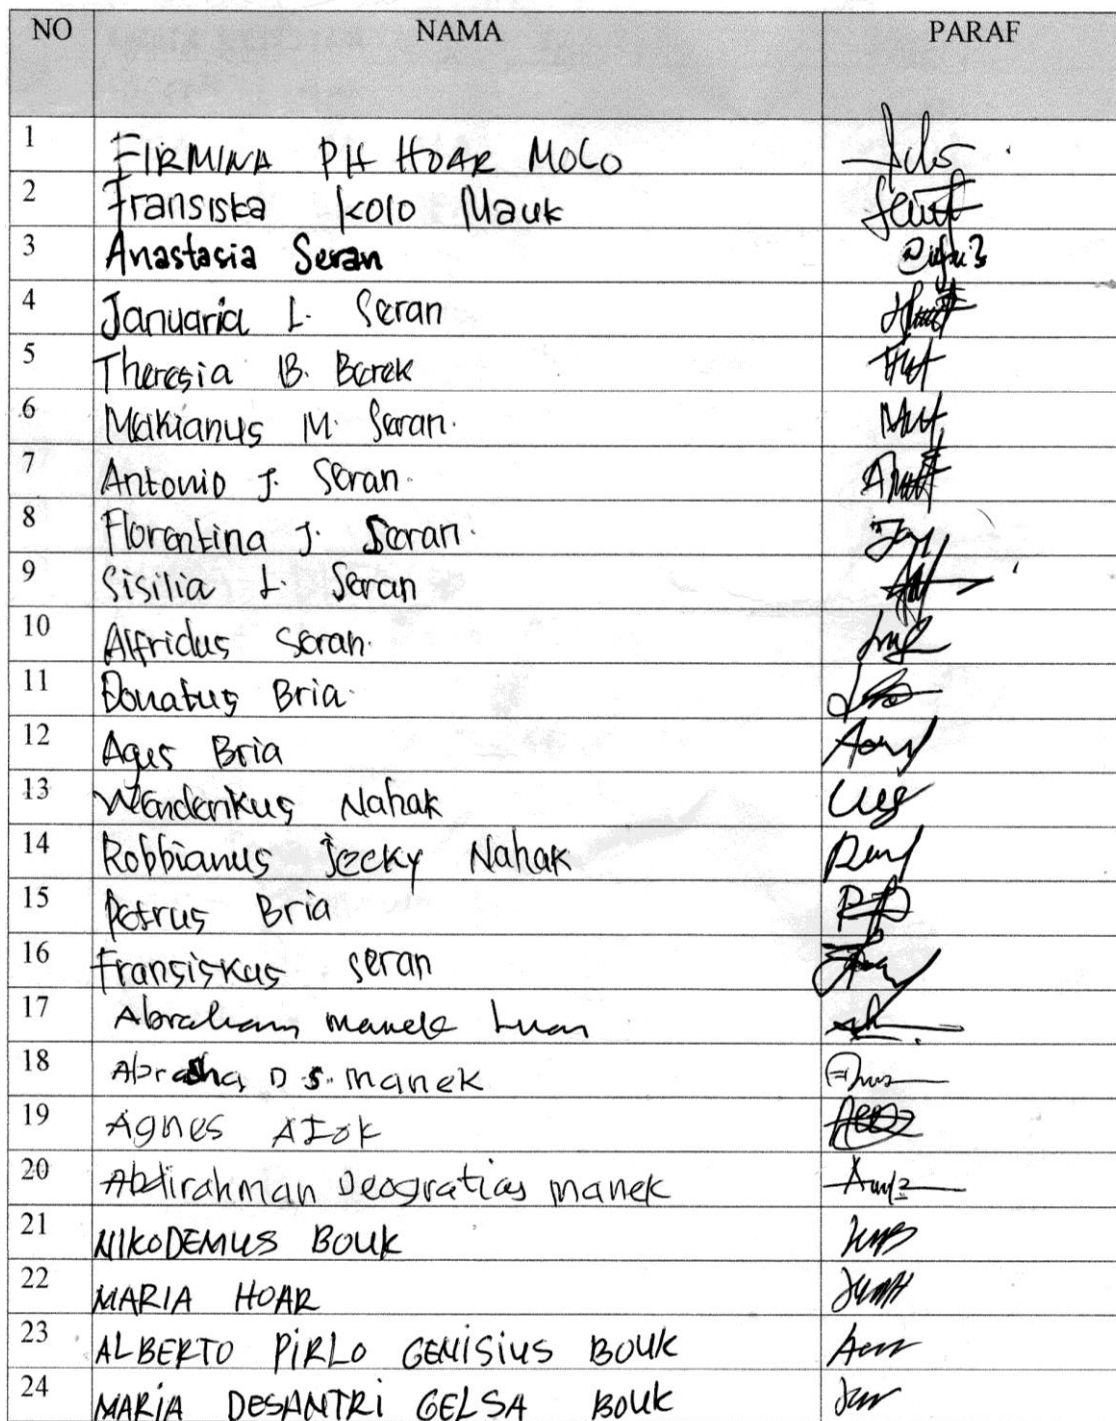 NO NAMA PARAF
1 FIRMINA PH HOAR MOLO
2 Fransiska Kolo Mauk
3 Anastasia Seran
4 Januaria L. Seran
5 Theresia B. Berek
6 Makianus M. Seran.
7 Antonio J. Seran.
8 Florentina J. Seran.
9 Sisilia L. Seran
10 Alfridus Seran.
11 Donatus Bria.
12 Agus Bria
13 Wenderikus Nahak
14 Robbianus Jecky Nahak
15 Petrus Bria
16 Fransiskus seran
17 Abraham manek Luan
18 D S. manek
19 Agnes
20 Abdirahman Deogratias manek
21 NIKODEMUS BOUK
22 MARIA HOAR
23 ALBERTO PIRLO GENISIUS BOUK
24 MARIA DESANTRI GELSA BOUK